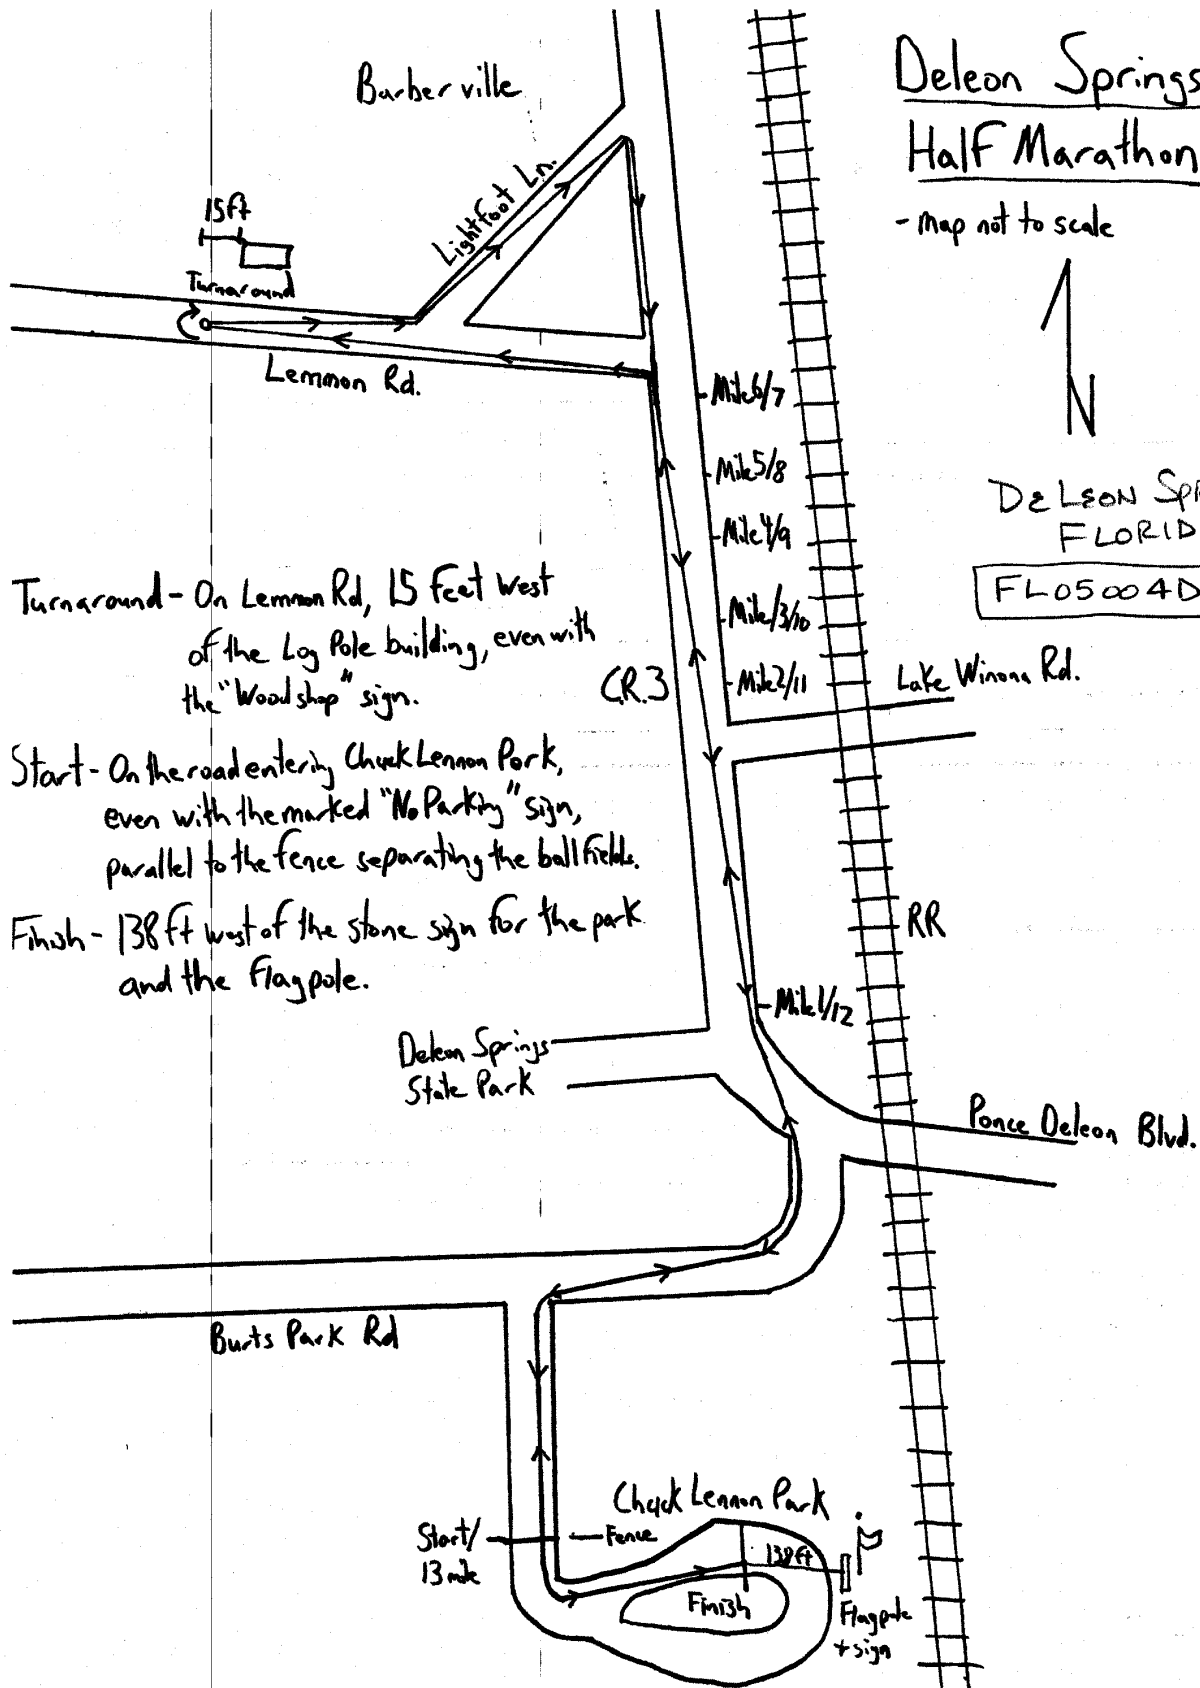 Barberville
Deleon Springs
Half Marathon
- map not to scale
Lightfoot Ln.
15ft
Turnaround
Lemmon Rd.
N
Mile 6/7
Mile 5/8
Mile 4/9
Mile/3/10
Mile 2/11
DeLEON SPR
FLORID
FL05004D
Turnaround - On Lemmon Rd, 15 feet west
of the Log Pole building, even with
the "Woodshop" sign.
C.R.3
Lake Winona Rd.
Start - On the road entering Chuck Lennon Park,
even with the marked "No Parking" sign,
parallel to the fence separating the ballfields.
Finish - 138 ft west of the stone sign for the park
and the flagpole.
RR
Mile 1/12
Deleon Springs
State Park
Ponce Deleon Blvd.
Burts Park Rd
Chuck Lennon Park
Start/
13 mile
Fence
138ft
Finish
Flagpole
+ sign